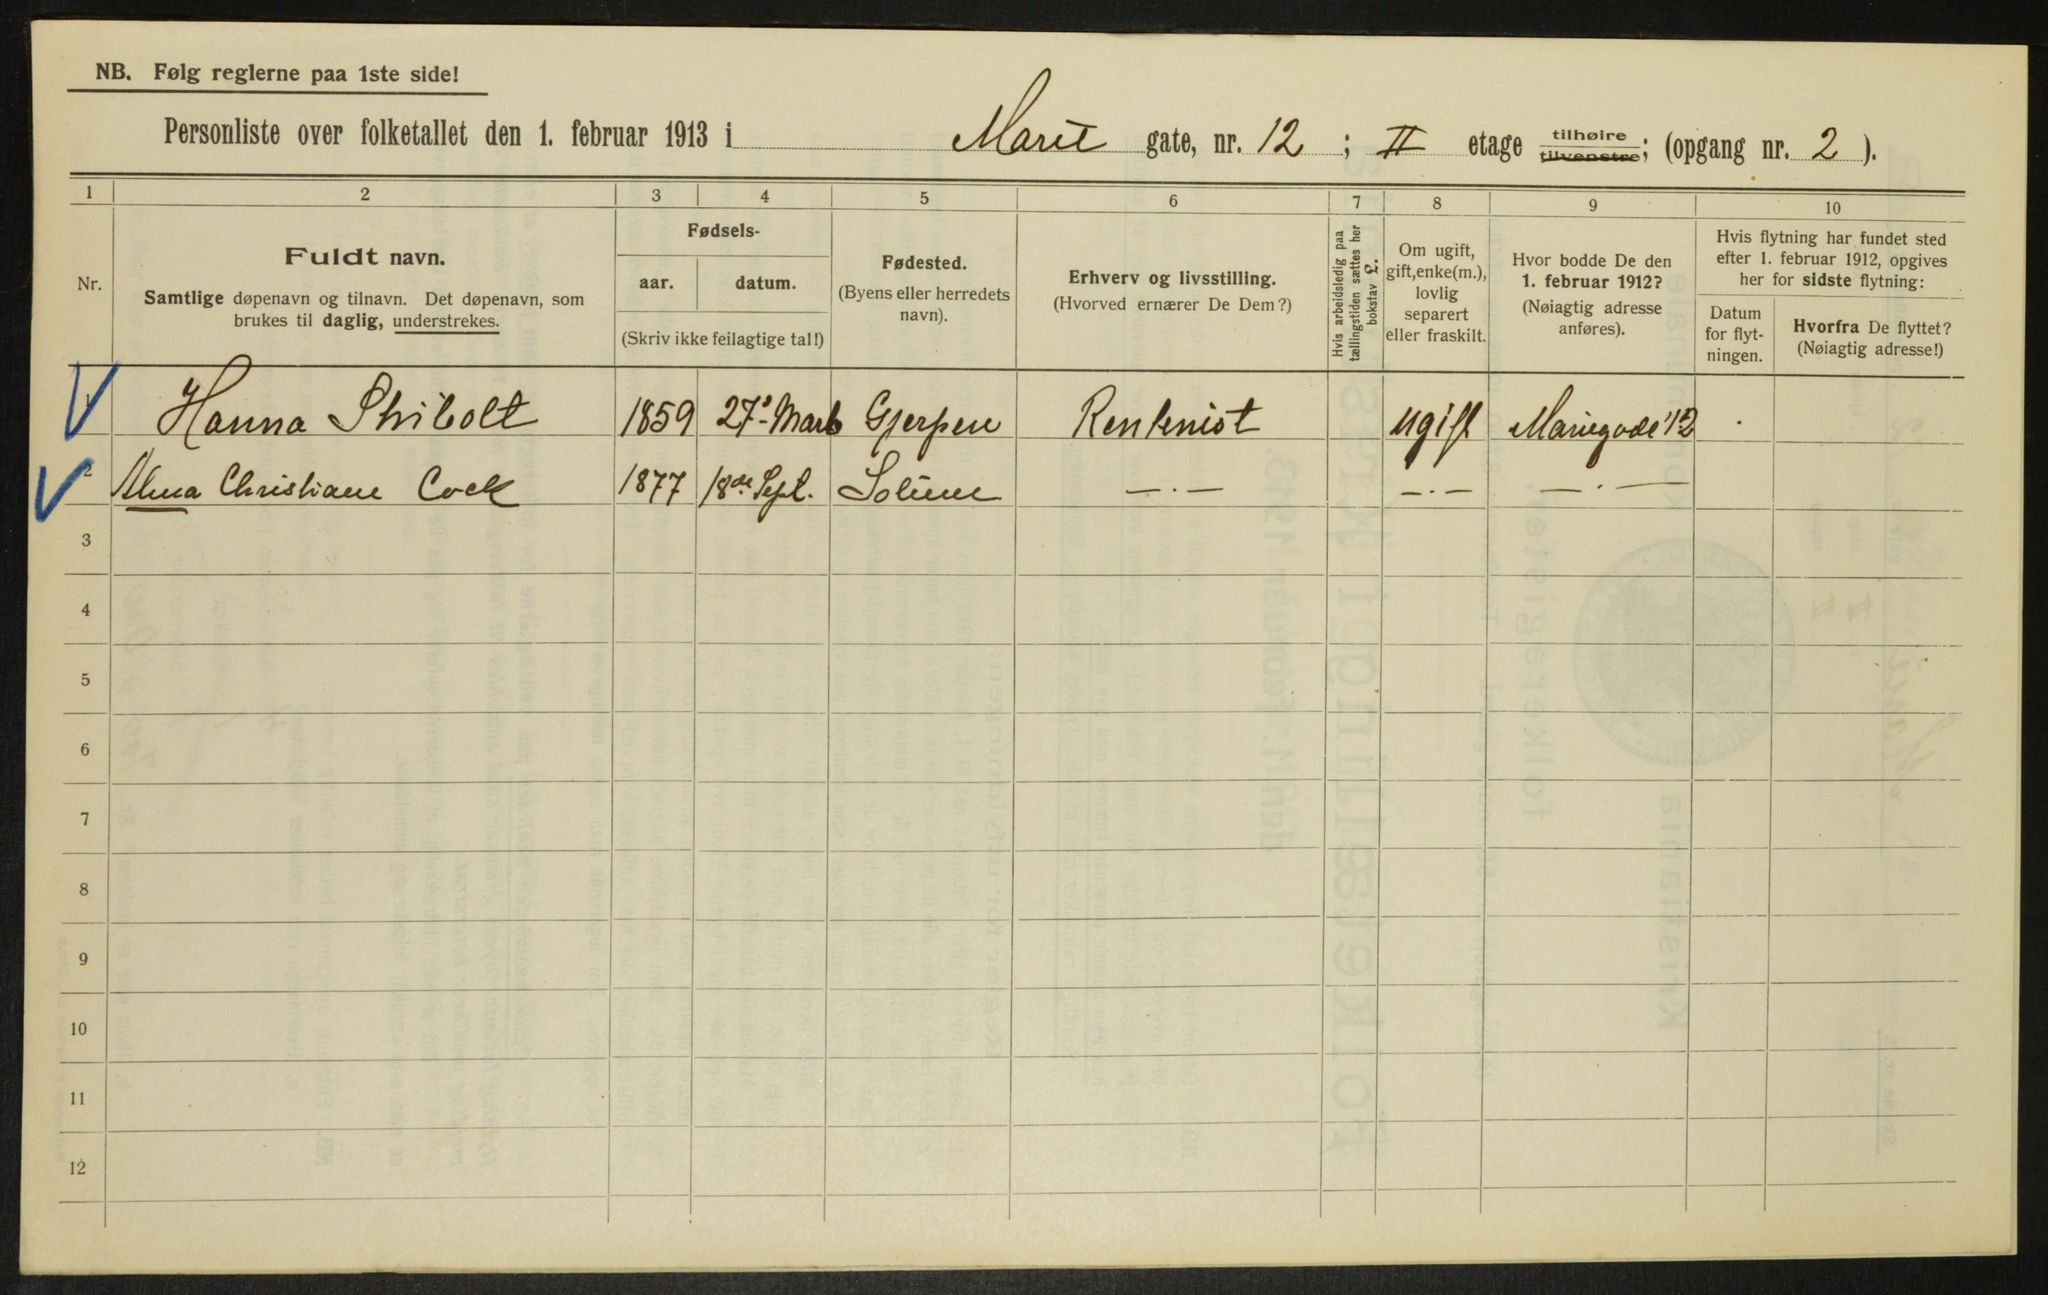 NB. Følg reglerne paa 1ste side!
Personliste over folketallet den 1. februar 1913 i Marie gate, nr. 12 ; II etage tilhøire tilvenstre; (opgang nr. 2 ).
1 2 3 4 5 6 7 8 9 10
Nr.
Fuldt navn.
Samtlige døpenavn og tilnavn. Det døpenavn, som
brukes til daglig, understrekes.
Fødsels-
aar. datum.
(Skriv ikke feilagtige tal!)
Fødested.
(Byens eller herredets
navn).
Erhverv og livsstilling.
(Hvorved ernærer De Dem?)
Hvis arbeidsledig paa
tællingstiden sættes her
bokstav L.
Om ugift,
gift, enke(m.),
lovlig
separert
eller fraskilt.
Hvor bodde De den
1. februar 1912?
(Nøiagtig adresse
anføres).
Hvis flytning har fundet sted
efter 1. februar 1912, opgives
her for sidste flytning:
Datum
for flyt-
ningen.
Hvorfra De flyttet?
(Nøiagtig adresse!)
1 Hanna 1859 27. Gjerpen Rentenist ugift Mariegade 12
2 Alma Christiane Cock 1877 18de Sept. Solum — . — — . — — . —
3
4
5
6
7
8
9
10
11
12